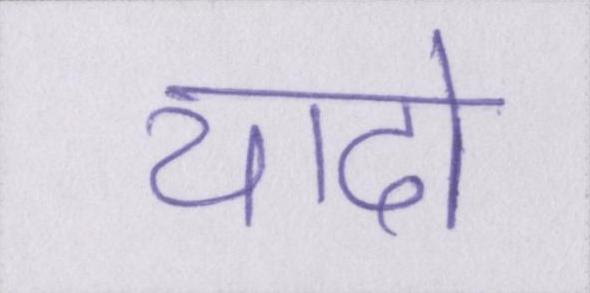 यादो